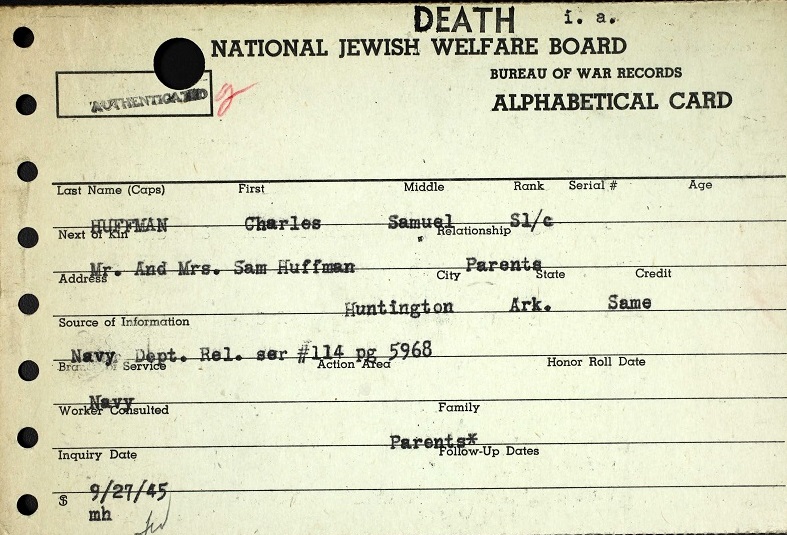 DEATH i. a.
NATIONAL JEWISH WELFARE BOARD
BUREAU OF WAR RECORDS
AUTHENTICATED
ALPHABETICAL CARD
Last Name (Caps) First Middle Rank Serial # Age
HUFFMAN Charles Samuel S1/c
Next of Kin Relationship
Mr. And Mrs. Sam Huffman Parents
Address City State Credit
Huntington Ark. Same
Source of Information
Navy Dept. Rel. ser #114 pg 5968
Service Action Area Honor Roll Date
Navy
Worker Consulted Family
Parents*
Inquiry Date Follow-Up Dates
$ 9/27/45
mh